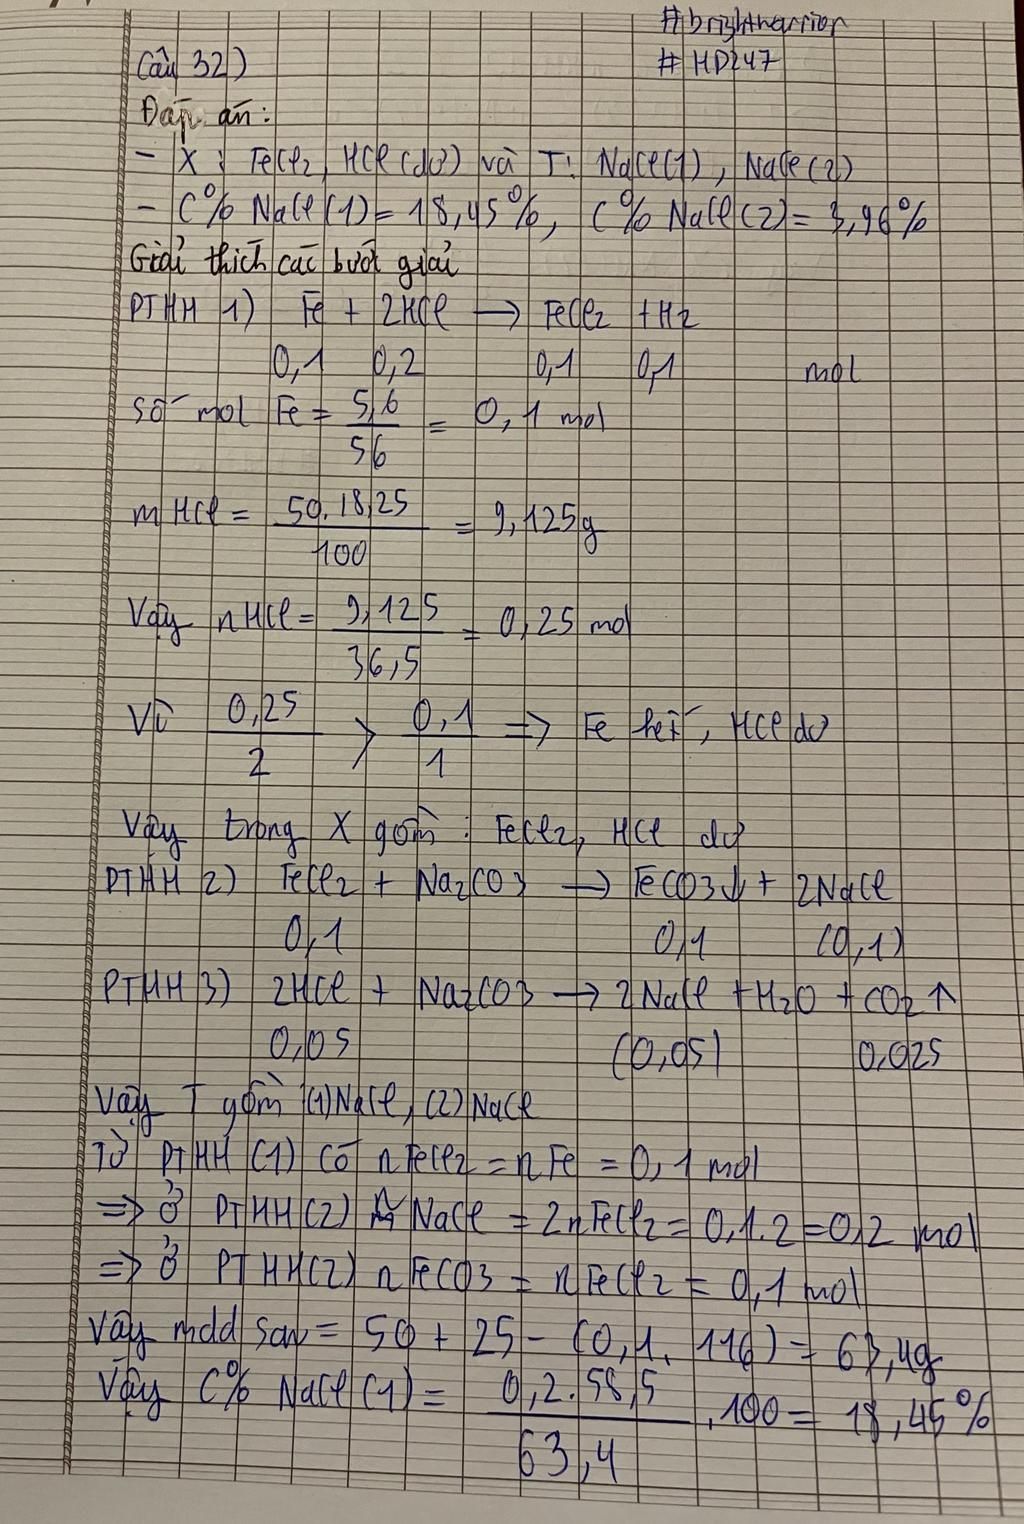 #brightwarrior
#HD247
Câu 32)
Đáp án:
- X: FeCl2, HCl (dư) và T: NaCl(1), NaCl(2)
- C% NaCl(1) = 18,45%, C% NaCl(2) = 3,96%
Giải thích các bước giải
PTHH 1) Fe + 2HCl → FeCl2 + H2
0,1 0,2 0,1 0,1 mol
số mol Fe = 5,6/56 = 0,1 mol
mHCl = 50.18,25/100 = 9,125g
Vậy nHCl = 9,125/36,5 = 0,25 mol
Vì 0,25/2 > 0,1/1 => Fe hết, HCl dư
Vậy trong X gồm: FeCl2, HCl dư
PTHH 2) FeCl2 + Na2CO3 → FeCO3↓ + 2NaCl
0,1 0,1 (0,1)
PTHH 3) 2HCl + Na2CO3 → 2NaCl + H2O + CO2↑
0,05 (0,05) 0,025
Vậy T gồm (1)NaCl, (2)NaCl
Từ PTHH (1) có nFeCl2 = nFe = 0,1 mol
=> Ở PTHH(2) NaCl = 2nFeCl2 = 0,1.2 = 0,2 mol
=> Ở PTHH(2) nFeCO3 = nFeCl2 = 0,1 mol
Vậy mdd sau = 50 + 25 - (0,1.116) = 63,4g
Vậy C% NaCl(1) = 0,2.58,5/63,4 .100 = 18,45%